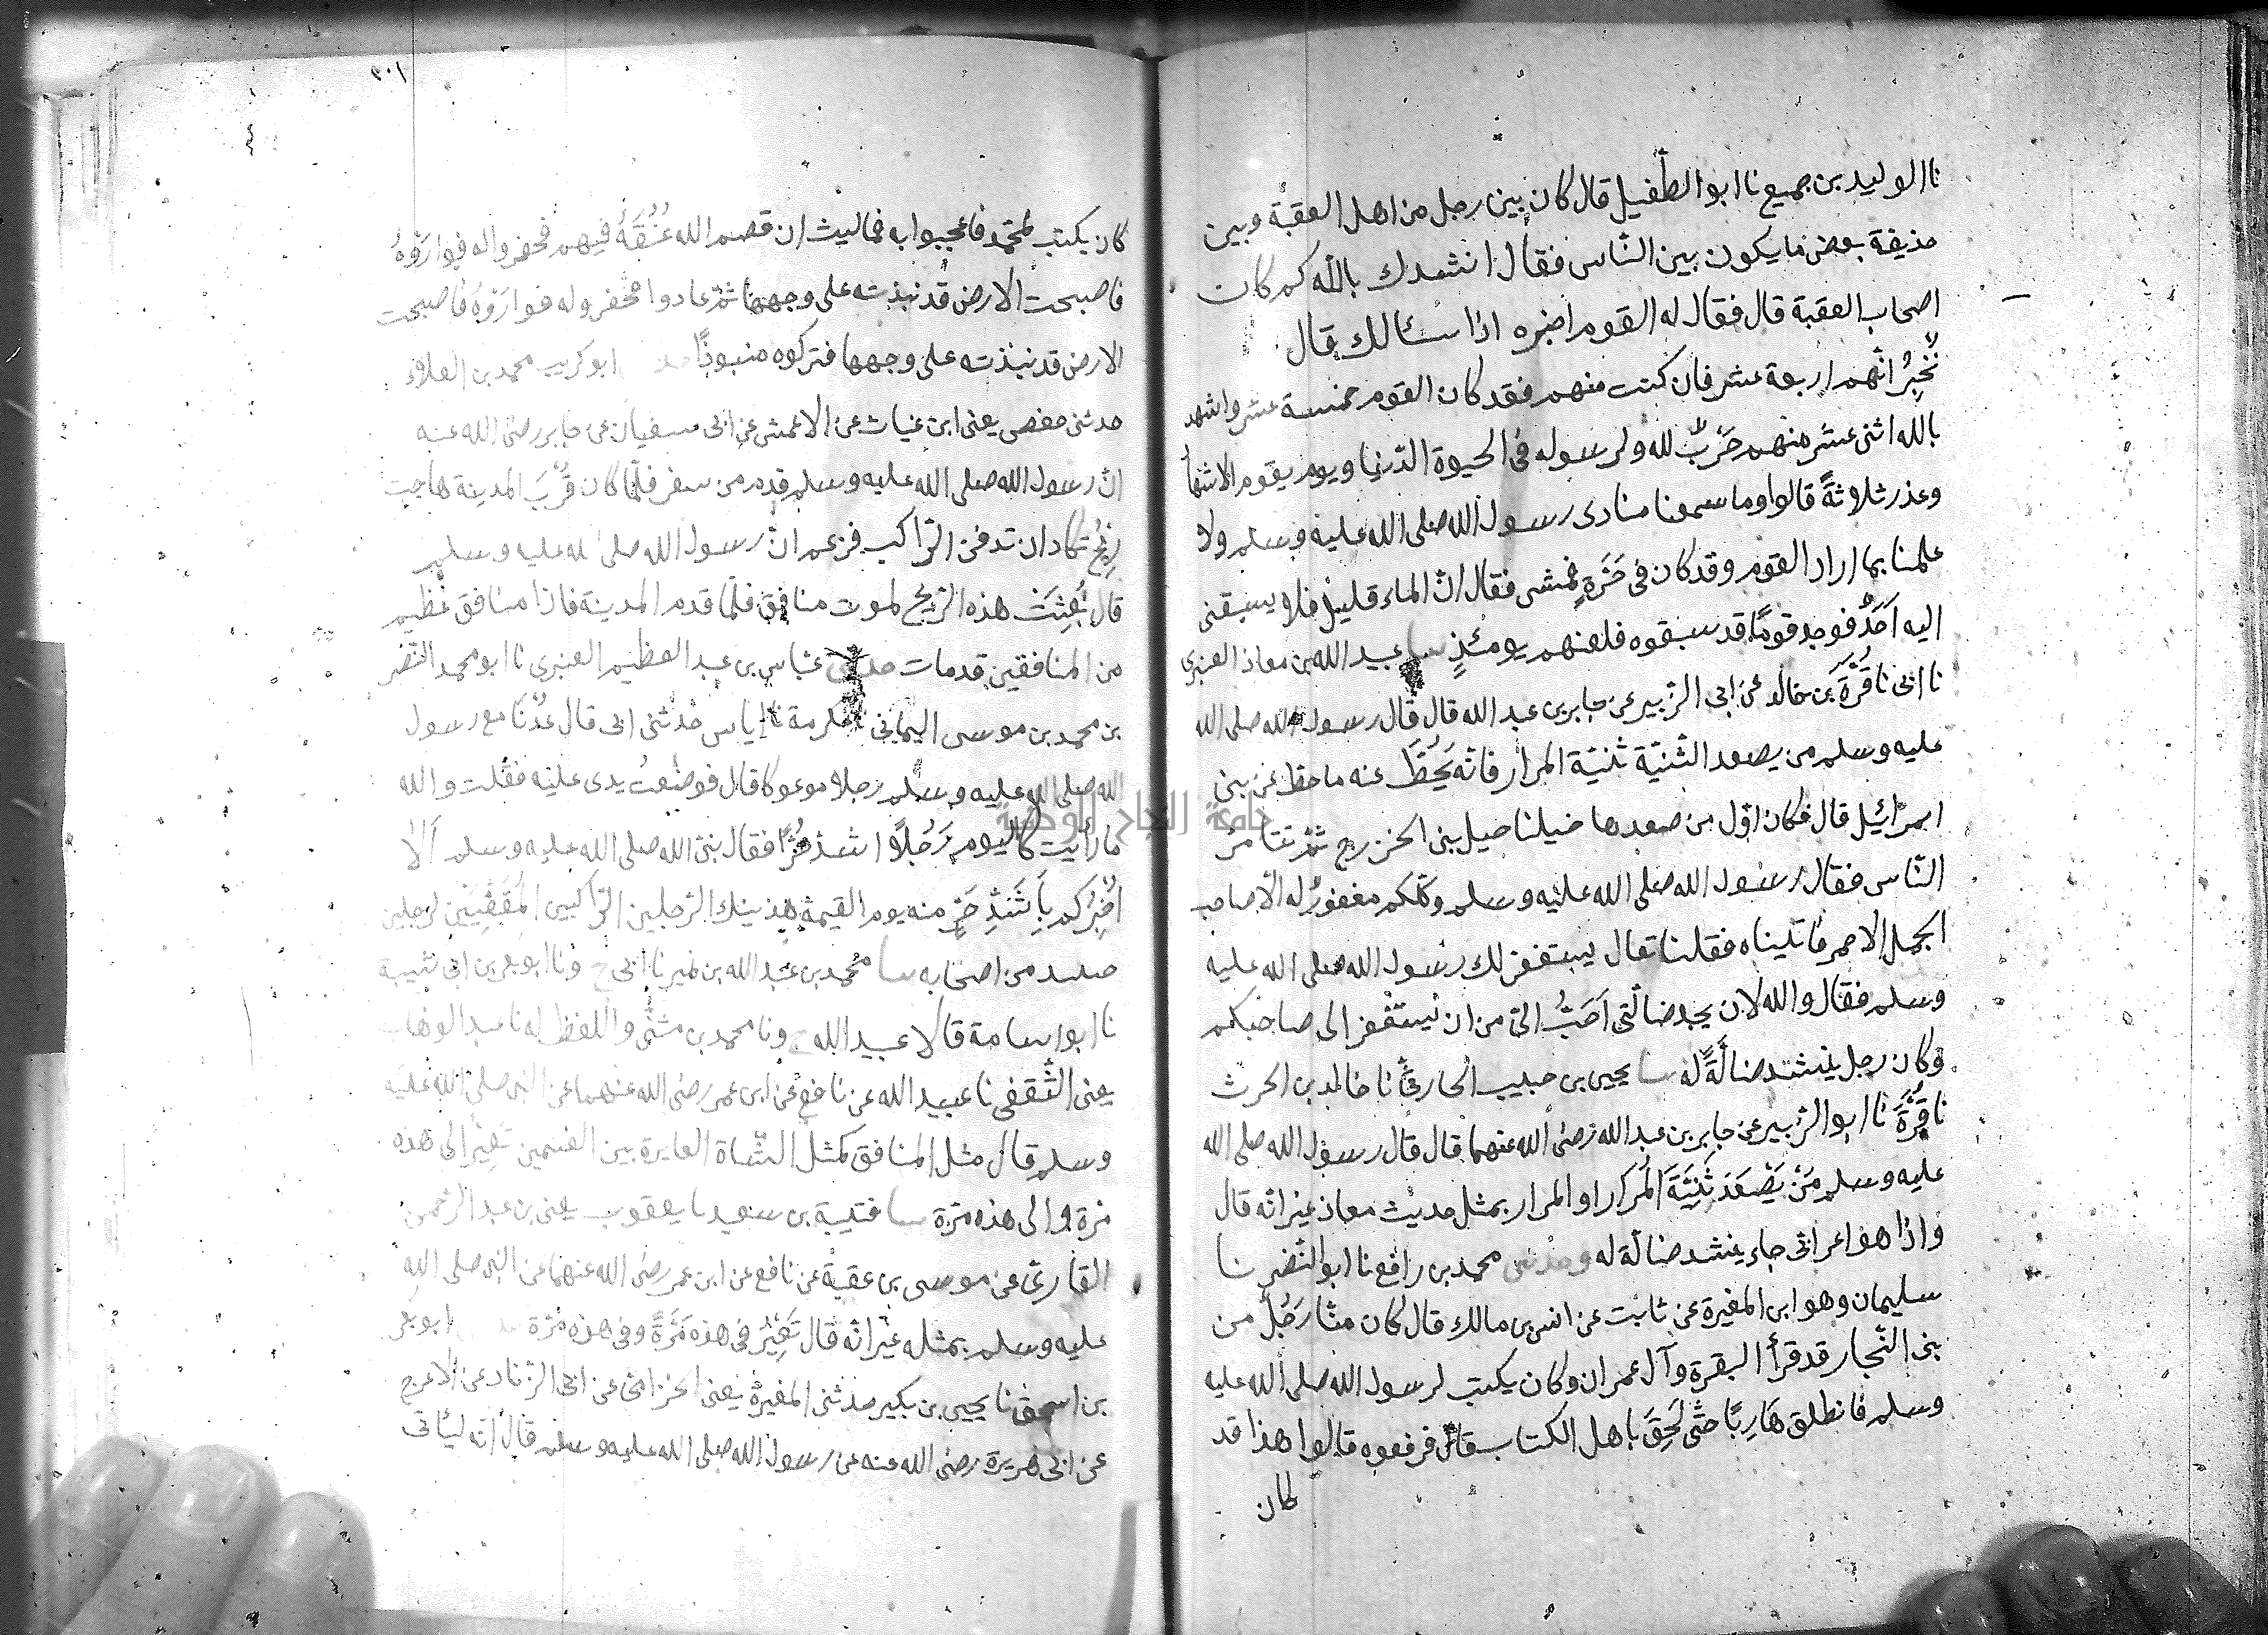 نا الوليد بن جميع نا ابو الطفيل قال كان بين رجل من اهل العقبة وبين
حذيفة بعض ما يكون بين الناس فقال انشدك بالله كم كان
اصحاب العقبة قال فقال له القوم اخبره اذا سئالك قال
نُخْبِرُ انّهم اربعة عشر فان كنت منهم فقد كان القوم خمسة عشر واشهد
بالله اثنى عشر منهم حَرْبٌ لله ولرسوله فى الحيوة الدّنيا ويوم يقوم الاشهاد
وعذر ثلاثةً قالوا وما سمعنا منادى رسول الله صلى الله عليه وسلم ولا
علمنا بما اراد القوم وقد كان فى حَرَّةٍ فمشى فقال انّ الماء قليل فلا يسبقنى
اليه اَحَدٌ فوجد قومًا قد سبقوه فلعنهم يومئذٍ نا عبيد الله بن معاذ العنبرى
نا ابى نا قُرَّةَ بن خالد عن ابى الزّبير عن جابر بن عبد الله قال قال رسول الله صلى الله
عليه وسلم من يصعد الثّنيّة ثنيّة المرار فانّه يُحَطَّ عنه ما حط عن بنى
اسرائيل قال فكان اوّل من صعدها خيلنا خيل بنى الخزرج ثمّ تتامّ
النّاس فقال رسول الله صلى الله عليه وسلم وكلّكم مغفورٌ له الّا صاحب
الجمل الاحمر فاتيناه فقلنا تعال يستغفر لك رسول الله صلى الله عليه
وسلم فقال والله لان يجد ضالّتى اَحَبُّ الىّ من ان يستغفر الى صاحبكم
وكان رجل ينشد ضالّةً له نا يحيى بن حبيب الحارثىّ نا خالد بن الحرث
نا قُرَّةَ نا ابو الزّبير عن جابر بن عبد الله رضى الله عنهما قال قال رسول الله صلى الله
عليه وسلم مَنْ يَصْعَد ثَنِيَّةَ المُرَار او المرار بمثل حديث معاذ غير انّه قال
واذا هو اعرابى جاء ينشد ضالّة له وحدثنى محمد بن رافع نا ابو النّضر نا
سليمان وهو ابن المغيرة عن ثابت عن انس بن مالك قال كان منّا رَجُلٌ من
بنى النّجار قد قرأ البقرة وآل عمران وكان يكتب لرسول الله صلى الله عليه
وسلم فانطلق هَارِبًا حتّى لَحِقَ باهل الكتاب قال فرفعوه قالوا هذا قد
كان
٣٠١
كان يكتب لمحمّد فاعجبوا به فما لبث ان قصم الله عُنُقَهُ فيهم فحفروا له فوارَوْهُ
فاصبحت الارض قد نبذته على وجهها ثمّ عادوا فحفروا له فوارَوْهُ فاصبحت
الارض قد نبذته على وجهها فتركوه منبوذًا ابو كريب محمد بن العلاء
حدثنى حفص يعنى ابن غياث عن الاعمش عن ابى سفيان عن جابر رضى الله عنه
انّ رسول الله صلى الله عليه وسلم قدم من سفر فلمّا كان قُرْبَ المدينة هاجت
رِيْحٌ تكاد ان تدفن الرّاكب فزعم انّ رسول الله صلى الله عليه وسلم
قال بُعِثَتْ هذه الرّيح لموت منافق فلمّا قدم المدينة فاذا منافق عظيم
من المنافقين قد مات حدثنى عبّاس بن عبد العظيم العنبرى نا ابو محمد النّضر
بن محمد بن موسى اليمانى نا عكرمة نا اياس حدثنى ابى قال عُدْنَا مع رسول
الله صلى الله عليه وسلم رجلا موعوكا قال فوضعتُ يدى عليه فقلت والله
ما رأيت كاليوم رَجُلًا اشد حَرًّا فقال نبىّ الله صلى الله عليه وسلم اَلَا
اُخْبِرُكم بِاَشَدِّ حَرٍّ منه يوم القيمة هذينك الرّجلين الرّاكبين المُقَفِّيَيْنِ لرجلين
حينئذ من اصحابه نا محمد بن عبد الله بن نمير نا ابى ح ونا ابو بكر بن ابى شيبة
نا ابو اسامة قالا عبيد الله ح ونا محمد بن مثنّى واللفظ له نا عبد الوهاب
يعنى الثّقفى نا عبيد الله عن نافع عن ابن عمر رضى الله عنهما عن النبى صلى الله عليه
وسلم قال مثل المنافق كمثل الشّاة العايرة بين الغنمين تَعِيْرُ الى هذه
مرة والى هذه مرّة نا قتيبة بن سعيد نا يعقوب يعنى بن عبد الرّحمن
القارىّ عن موسى بن عقبة عن نافع عن ابن عمر رضى الله عنهما عن النبى صلى الله
عليه وسلم بمثله غير انّه قال تَعِيْرُ فى هذه مَرَّةً وفى هذه مرّة ابو بكر
بن اسحق نا يحيى بن بكير حدثنى المغيرة يعنى الحزامى عن ابى الزّناد عن الاعرج
عن ابى هريرة رضى الله عنه عن رسول الله صلى الله عليه وسلم قال انّه ليأتى
جامعة النجاح الوطنية